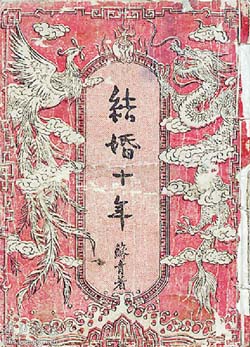 結婚十年
蘇青著